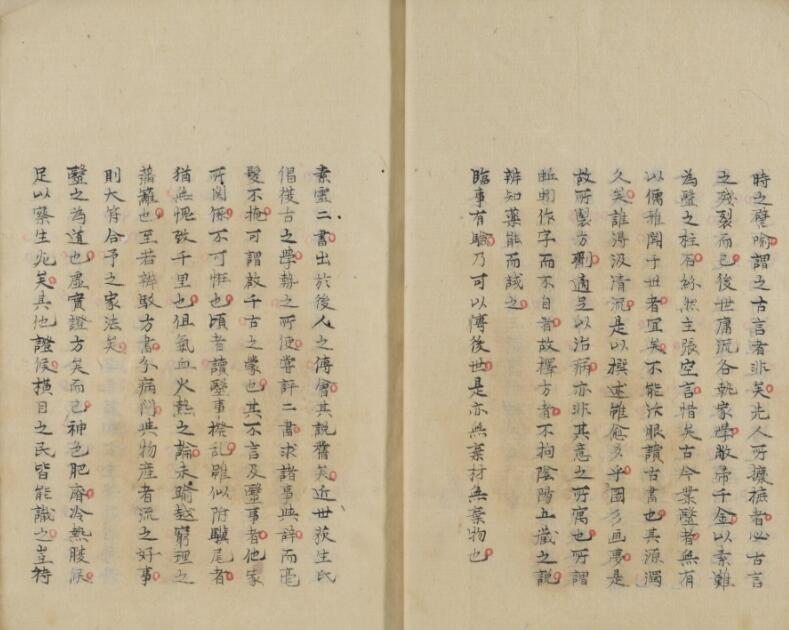 時之麈喻謂之古言者非矣先人所攗摭者必古言
之殘裂而已後世庸流各執家學敝帚千金以素難
為毉之柱石紛然主張空言惜矣古今業毉者無有
以儒雅聞于世者宜矣不能活眼讀古書也其源濁
久矣誰得汲清流是以撰述雖愈多乎圖多画夢是
故所製方劑適足以治病亦非其意之所寓也所謂
蚯蚓作字而不自者故擇方者不拘陰陽五藏之說
辨知藥能而試之
臨事有驗乃可以傳後世是亦無棄材無棄物也
素靈二書出於後人之傅會其說舊矣近世荻生氏
倡復古之學執之所使嘗評二書求諸事與辭而毫
髮不掩可謂啟千古之蒙也其不言及毉事者他家
所関係不可恠也頃者讀毉事撥乱雖似附驥尾者
猶無愧致千里也但氣血火熱之論未踰越窮理之
藩籬也至若辨駁方書分病門與物產者流之好事
則大符合予之家法矣
毉之為道也虛實證方矣而已神色肥瘠冷熱腠候
足以察生死矣其他證候横目之民皆能識之豈待